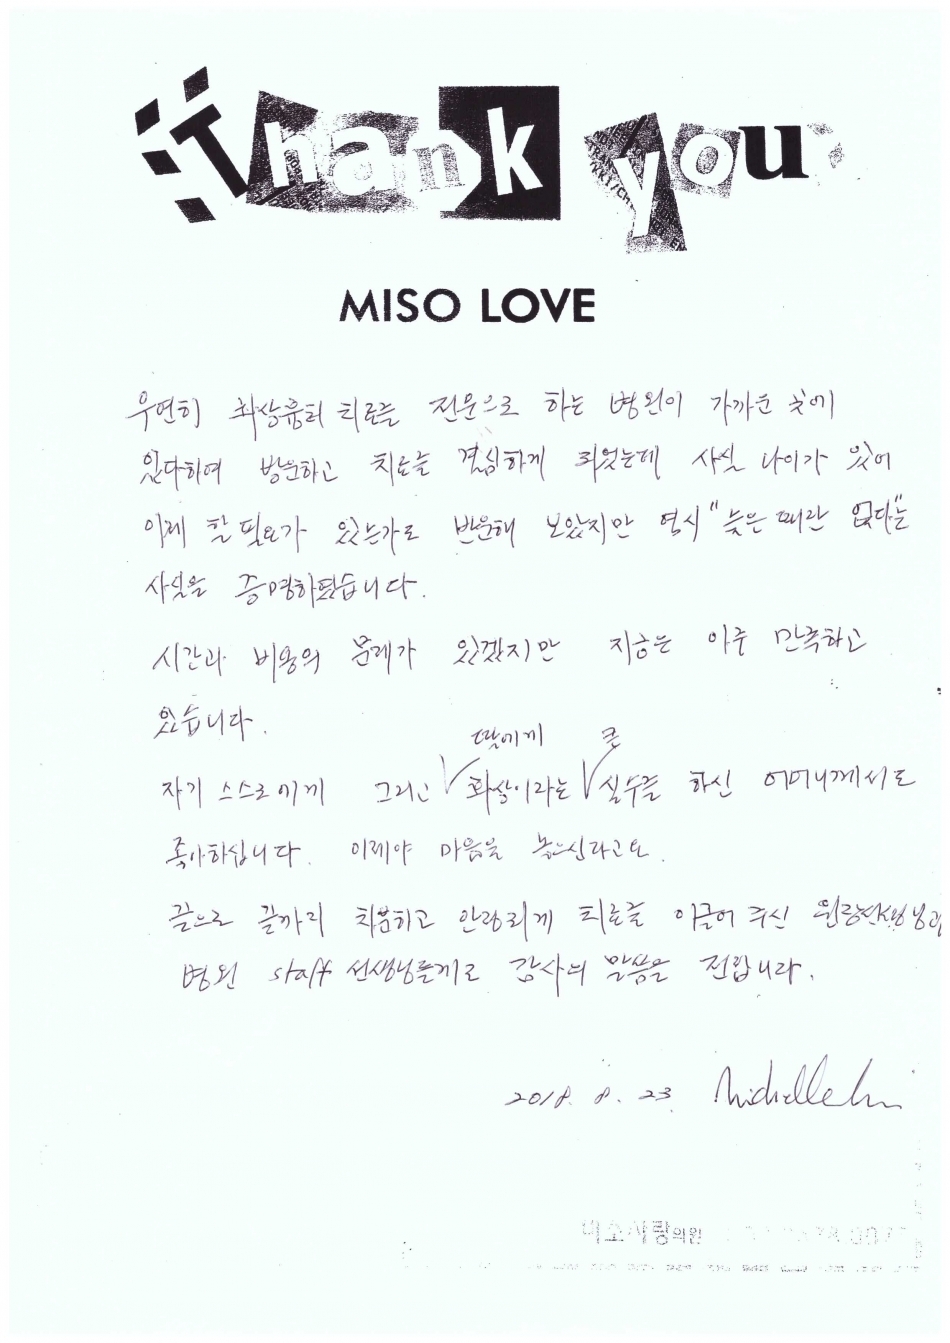 Thank you
MISO LOVE
우연히 화상흉터 치료를 전문으로 하는 병원이 가까운 곳에
있다하여 방문하고 치료를 결심하게 되었는데 사실 나이가 있어
이제 할 필요가 있는가로 반문해 보았지만 역시 "늦은 때란 없다"는
사실을 증명하였습니다.
시간과 비용의 문제가 있겠지만 지금은 아주 만족하고
있습니다.
딸에게 큰
자기 스스로에게 그리고 화상이라는 실수를 하신 어머니께서도
좋아하십니다. 이제야 마음을 놓으신다고요.
끝으로 끝까지 차분하고 안락하게 치료를 이끌어 주신 원장선생님과
병원 staff 선생님들께도 감사의 말씀을 전합니다.
2018. 8. 23
미소사랑의원